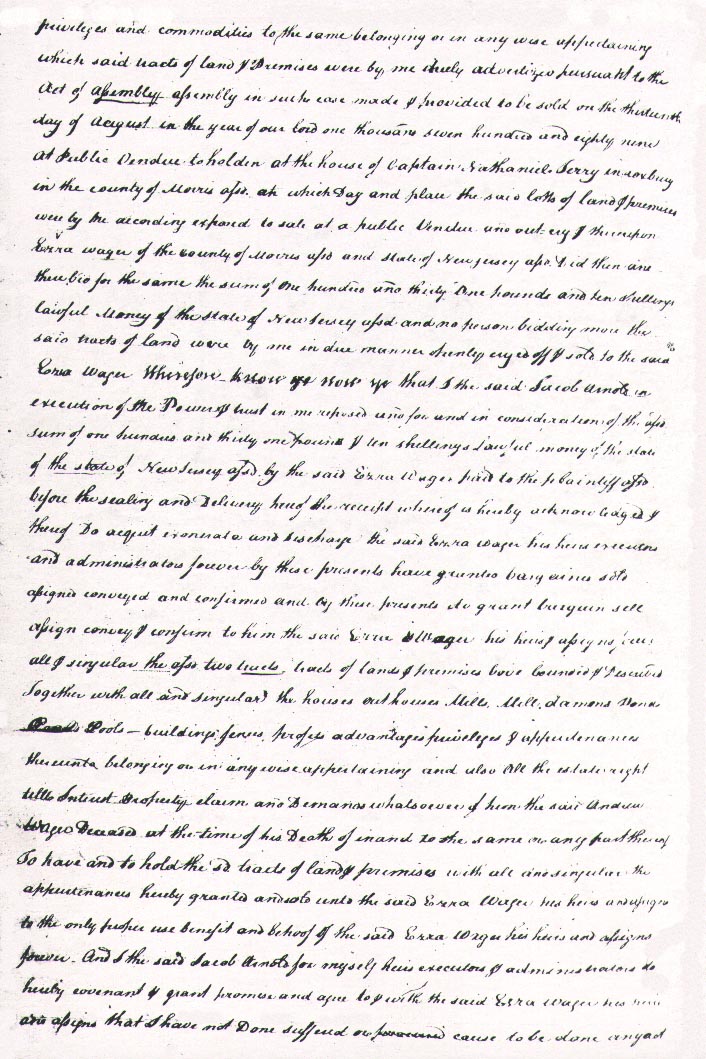 privileges and commodities to the same belonging or in any wise appertaining
which said tracts of land & Premises were by me duely advertized pursuant to the
Act of assembly assembly in such case made & provided to be sold on the thirteenth
day of August in the year of our lord one thousand seven hundred and eighty nine
At Public Vendue to holden at the house of Captain Nathaniel Terry in roxbury
in the county of Morris afsd. at which Day and place the said lotts of land & premises
were by the according exposed to sale at a public Vendue and out-cry & thereupon
Ezra wager of the county of Morris afsd and state of New Jersey afsd. Did then and
there bid for the same the sum of one hundred and thirty One pounds and ten shillings
lawful Money of the state of New Jersey afsd. and no person bidding more the
said tracts of land were by me in due manner cryed off & sold to the said
Ezra Wager Wherefore know ye now ye that I the said Jacob Arnold in
execution of the Power & trust in me reposed and for and in consideration of the afsd.
sum of one hundred and thirty one pound & ten shillings Lawful money of the state
of the state of New Jersey afsd. by the said Ezra Wager paid to the plaintiff afsd.
before the sealing and Delivery hereof the receipt whereof is hereby acknowledged &
thereof Do acquit exonerate and discharge the said Ezra Wager his heirs executors
and administrators forever by these presents have granted bargained sold
assigned conveyed and confirmed and by these presents do grant bargain sell
assign convey & confirm to him the said Ezra Wager his heirs & assigns
all & singular the afsd two tracts, tracts of land & premises bove bounded & Described
Together with all and singular the houses outhouses Mills, Mill, damons Ponds
Pools – buildings, fences, profits advantages priviledges & appurtenances
thereunto belonging or in any wise appertaining and also All the estate right
title Intrest Property claim and Demand whatsoever of him the said Andrew
Wager Deceased at the time of his Death of in and to the same or any part thereof
To have and to hold the sd. tracts of land & premises with all and singular the
appurtenances hereby granted and sold unto the said Ezra Wager his heirs and assigns
to the only proper use benefit and behoof of the said Ezra Wager his heirs and assigns
forever. And I the said Jacob Arnold for myself heirs executors & administrators do
hereby covenant & grant promise and agree to & with the said Ezra Wager his heirs
and assigns that I have not Done suffered or cause to be done any act